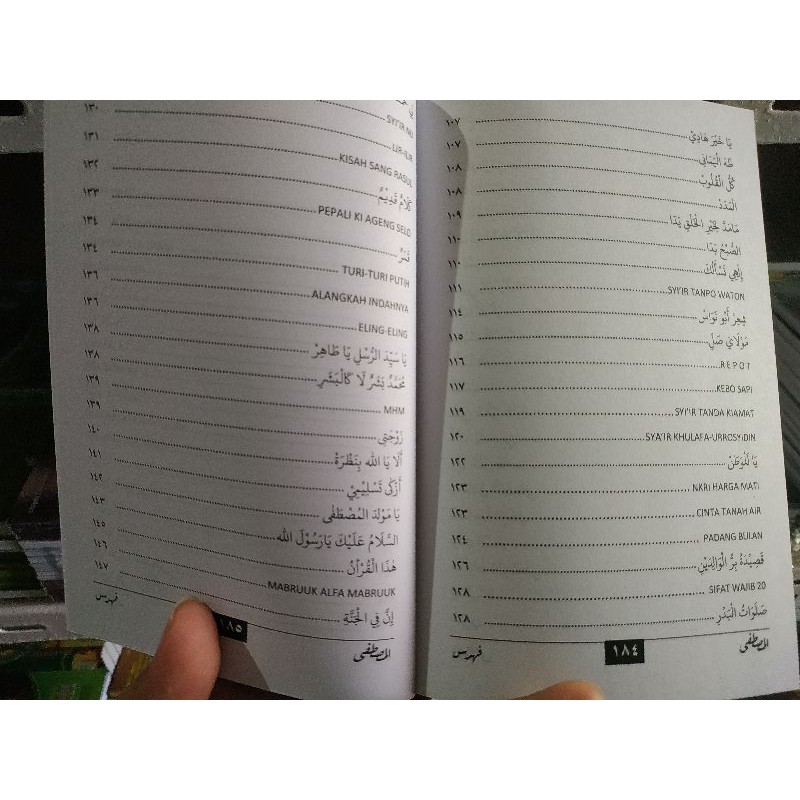 يَا خَيْرَ هَادِيْ ........ ١٠٧
طٰهَ الْيَمَانِي ........ ١٠٧
كُلُّ الْقُلُوْبْ ........ ١٠٨
الْمَدَدْ ........ ١٠٨
مَامَدَّ لِخَيْرِ الْخَلْقِ يَدًا ........ ١٠٩
الصُّبْحُ بَدَا ........ ١١٠
إِلٰهِي نَسْأَلُكْ ........ ١١٠
SYI'IR TANPO WATON ........ ١١١
شِعِرْ أَبُو نَوَاسْ ........ ١١٤
مَوْلَايَ صَلِّي ........ ١١٥
R E P O T ........ ١١٦
KEBO SAPI ........ ١١٧
SYI'IR TANDA KIAMAT ........ ١١٩
SYA'IR KHULAFA-URROSYIDIN ........ ١٢٠
يَا لَلْوَطَنْ ........ ١٢٢
NKRI HARGA MATI ........ ١٢٣
CINTA TANAH AIR ........ ١٢٣
PADANG BULAN ........ ١٢٤
قَصِيْدَةُ بِرُّ الْوَالِدَيْنِ ........ ١٢٦
SIFAT WAJIB 20 ........ ١٢٨
صَلَوَاتُ الْبَدْرِ ........ ١٢٨
المصطفى ١٨٤ فهرس
SYI'IR NU
LIR-ILIR ........ ١٣٠
KISAH SANG RASUL ........ ١٣١
كَلَامٌ قَدِيْمٌ ........ ١٣٢
PEPALI KI AGENG SELO ........ ١٣٣
قَمَرٌ ........ ١٣٤
TURI-TURI PUTIH ........ ١٣٤
ALANGKAH INDAHNYA ........ ١٣٦
ELING-ELING ........ ١٣٦
يَا سَيِّدَ الرُّسْلِ يَا طَاهِرْ ........ ١٣٨
مُحَمَّدٌ بَشَرٌ لَا كَالْبَشَرِ ........ ١٣٨
MHM ........ ١٣٩
زَوْجَتِي ........ ١٣٩
أَلَا يَا الله بِنَظْرَةْ ........ ١٤٠
أَزْكَى تَسْلِيْمِيْ ........ ١٤١
يَا مَوْلِدَ الْمُصْطَفَى ........ ١٤٢
السَّلَامُ عَلَيْكَ يَارَسُوْلَ الله ........ ١٤٣
هٰذَا الْقُرْآنُ ........ ١٤٥
MABRUUK ALFA MABRUUK ........ ١٤٦
إِنَّ فِي الْجَنَّةِ ........ ١٤٧
المصطفى ١٨٥ فهرس